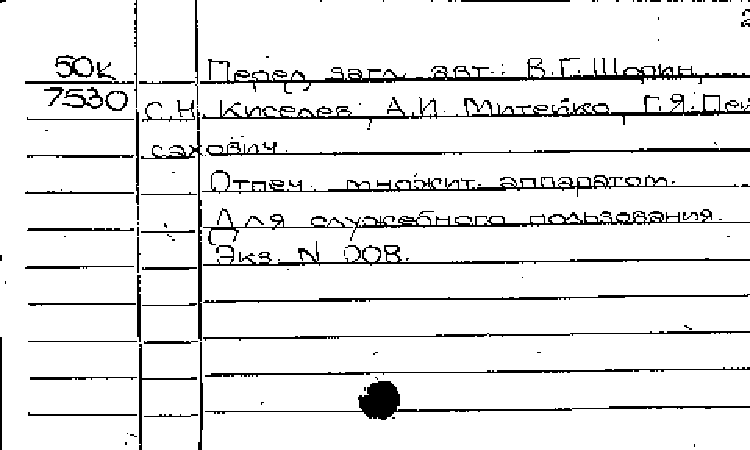 2
50к Перед загл. авт.: В.Г. Шорин,
7530 С.Н. Киселев, А.И. Митейко, Г.Я. Пей
сахович.
Отпеч. множит. аппаратом.
Для служебного пользования.
Экз. N 008.